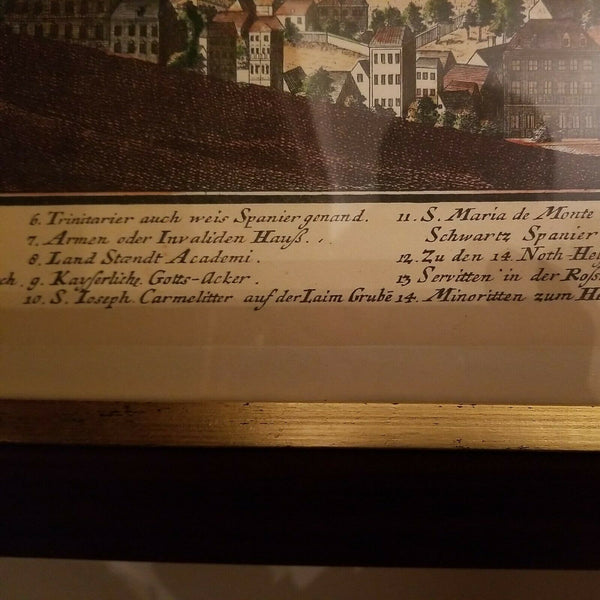 6. Trinitarier auch weis Spanier genand.
7. Armen oder Invaliden Hauß...
8. Land Standt Academi.
9. Kayserliche Gotts-Acker.
10. S. Ioseph. Carmelitter auf der Laim Grubē
11. S. Maria de Monte
Schwartz Spanier
12. Zu den 14. Noth-
13 Servitten in der
14. Minoritten zum